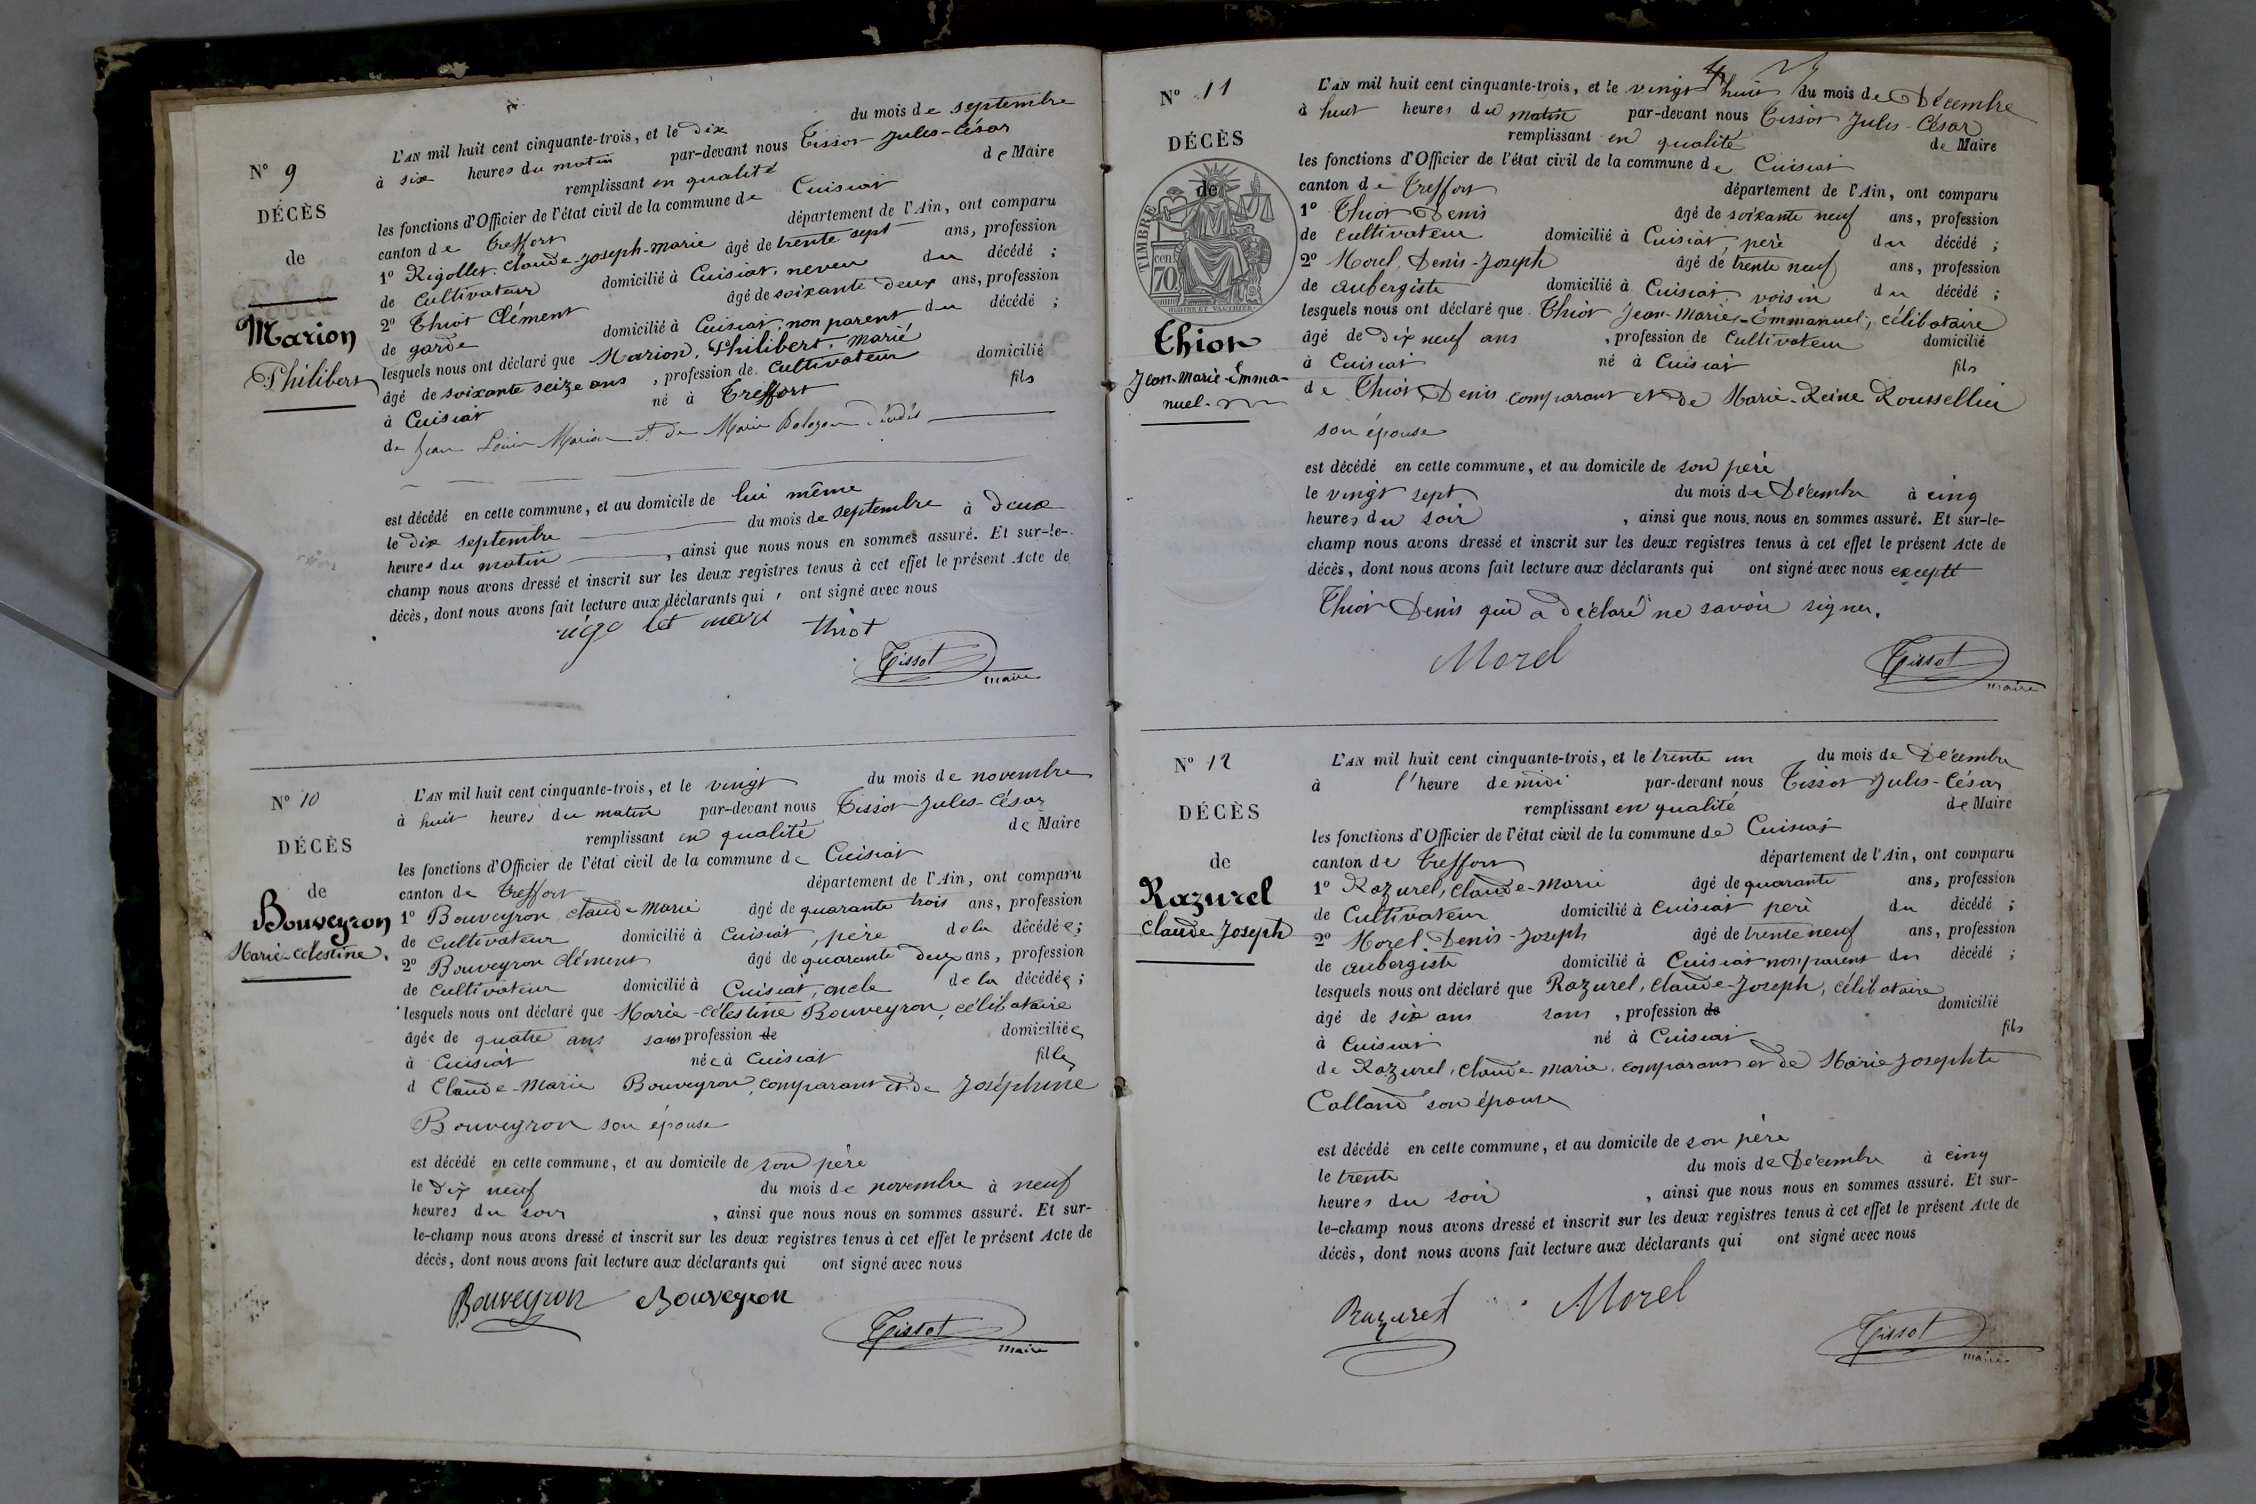 N° 9
DÉCÈS
de
Marion
Philibert
L'AN mil huit cent cinquante-trois, et le dix du mois de septembre
à six heures du matin par-devant nous Tissot Jules-César
remplissant en qualité de Maire
les fonctions d'Officier de l'état civil de la commune de Cuisiat
canton de Treffort département de l'Ain, ont comparu
1° Rigollet, Claude-Joseph-Marie âgé de trente sept ans, profession
de Cultivateur domicilié à Cuisiat, neveu du décédé ;
2° Thiot Clément âgé de soixante deux ans, profession
de garde domicilié à Cuisiat, non parent du décédé ;
lesquels nous ont déclaré que Marion, Philibert, marié
âgé de soixante seize ans , profession de Cultivateur domicilié
à Cuisiat né à Treffort fils
de Jean Louis Marion et de Marie décédés
est décédé en cette commune, et au domicile de lui même
le dix septembre du mois de septembre à deux
heures du matin , ainsi que nous nous en sommes assuré. Et sur-le-
champ nous avons dressé et inscrit sur les deux registres tenus à cet effet le présent Acte de
décès, dont nous avons fait lecture aux déclarants qui ont signé avec nous
thiot
Tissot
maire
N° 10
DÉCÈS
de
Bouveyron
Marie-Célestine.
L'AN mil huit cent cinquante-trois, et le vingt du mois de novembre
à huit heures du matin par-devant nous Tissot Jules-César
remplissant en qualité de Maire
les fonctions d'Officier de l'état civil de la commune de Cuisiat
canton de Treffort département de l'Ain, ont comparu
1° Bouveyron, Claude-Marie âgé de quarante trois ans, profession
de cultivateur domicilié à Cuisiat, père de la décédée ;
2° Bouveyron Clément âgé de quarante deux ans, profession
de cultivateur domicilié à Cuisiat, oncle de la décédée ;
lesquels nous ont déclaré que Marie-Célestine Bouveyron, célibataire
âgée de quatre ans sans profession de domiciliée
à Cuisiat née à Cuisiat fille
d Claude-Marie Bouveyron, comparant et de Joséphine
Bouveyron son épouse
est décédé en cette commune, et au domicile de son père
le dix neuf du mois de novembre à neuf
heures du soir , ainsi que nous nous en sommes assuré. Et sur-
le-champ nous avons dressé et inscrit sur les deux registres tenus à cet effet le présent Acte de
décès, dont nous avons fait lecture aux déclarants qui ont signé avec nous
Bouveyron Bouveyron
Tissot
maire
N° 11
DÉCÈS
de
TIMBRE
cent
70
Thiot
Jean-Marie-Emma-
nuel.
L'AN mil huit cent cinquante-trois, et le vingt huit du mois de Décembre
à huit heures du matin par-devant nous Tissot Jules-César
remplissant en qualité de Maire
les fonctions d'Officier de l'état civil de la commune de Cuisiat
canton de Treffort département de l'Ain, ont comparu
1° Thiot Denis âgé de soixante neuf ans, profession
de cultivateur domicilié à Cuisiat, père du décédé ;
2° Morel, Denis-Joseph âgé de trente neuf ans, profession
de aubergiste domicilié à Cuisiat, voisin du décédé ;
lesquels nous ont déclaré que Thiot Jean-Marie-Emmanuel, célibataire
âgé de dix neuf ans , profession de Cultivateur domicilié
à Cuisiat né à Cuisiat fils
de Thiot Denis comparant et de Marie-Reine Rousselliu
son épouse
est décédé en cette commune, et au domicile de son père
le vingt sept du mois de Décembre à cinq
heures du soir , ainsi que nous nous en sommes assuré. Et sur-le-
champ nous avons dressé et inscrit sur les deux registres tenus à cet effet le présent Acte de
décès, dont nous avons fait lecture aux déclarants qui ont signé avec nous excepté
Thiot Denis qui a déclaré ne savoir signer.
Morel
Tissot
maire
N° 12
DÉCÈS
de
Razurel
Claude Joseph
L'AN mil huit cent cinquante-trois, et le trente un du mois de Décembre
à l'heure de midi par-devant nous Tissot Jules-César
remplissant en qualité de Maire
les fonctions d'Officier de l'état civil de la commune de Cuisiat
canton de Treffort département de l'Ain, ont comparu
1° Razurel, Claude-Marie âgé de quarante ans, profession
de Cultivateur domicilié à Cuisiat père du décédé ;
2° Morel, Denis-Joseph âgé de trente neuf ans, profession
de aubergiste domicilié à Cuisiat non parent du décédé ;
lesquels nous ont déclaré que Razurel, Claude-Joseph, célibataire
âgé de six ans sans , profession de domicilié
à Cuisiat né à Cuisiat fils
de Razurel, Claude Marie, comparant et de Marie Josephte
Colland son épouse
est décédé en cette commune, et au domicile de son père
le trente du mois de Décembre à cinq
heures du soir , ainsi que nous nous en sommes assuré. Et sur-
le-champ nous avons dressé et inscrit sur les deux registres tenus à cet effet le présent Acte de
décès, dont nous avons fait lecture aux déclarants qui ont signé avec nous
Razurel Morel
Tissot
maire